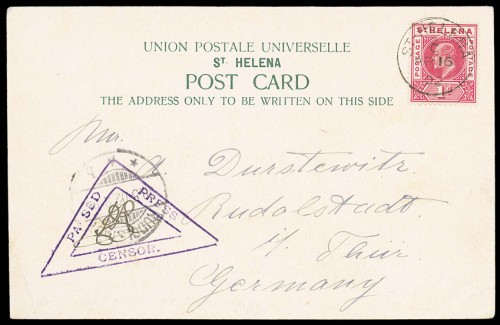 UNION POSTALE UNIVERSELLE
ST HELENA
POST CARD
THE ADDRESS ONLY TO BE WRITTEN ON THIS SIDE
ST HELENA
POSTAGE
POSTAGE
1d
16
Durstewitz
Rudolstadt
i/ Thür.
Germany
PASSED
PRESS
CENSOR.